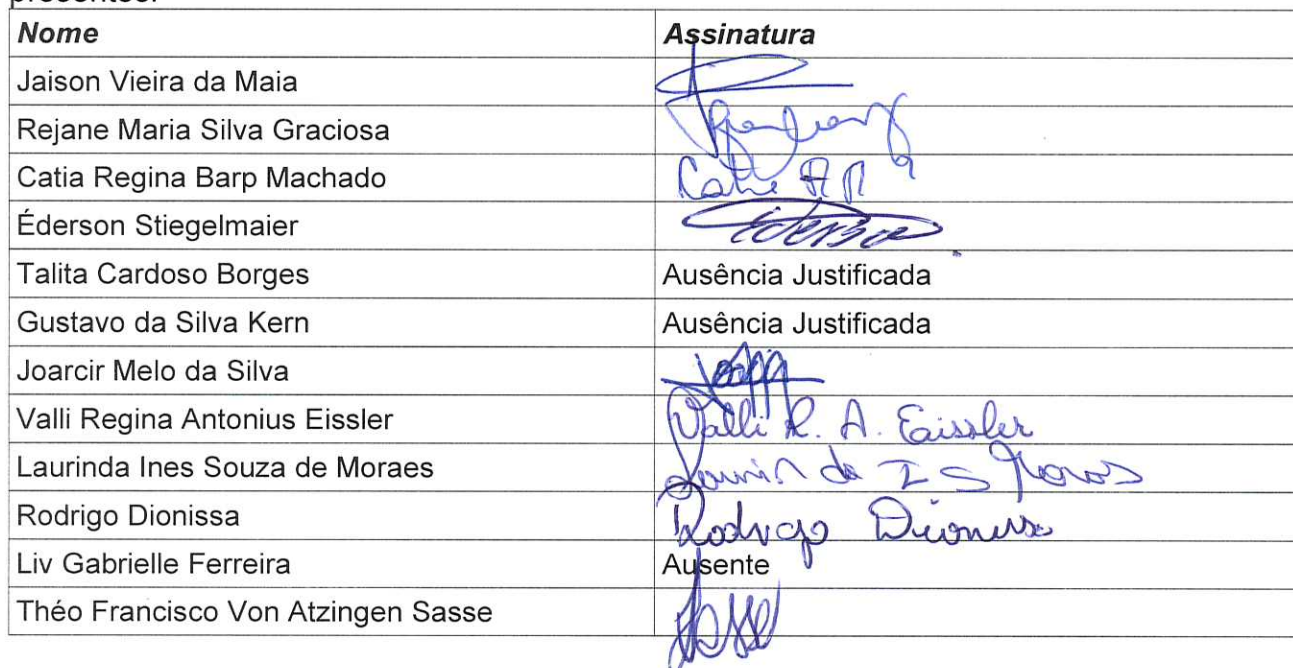 Nome Assinatura
Jaison Vieira da Maia
Rejane Maria Silva Graciosa
Catia Regina Barp Machado
Éderson Stiegelmaier Ederson
Talita Cardoso Borges Ausência Justificada
Gustavo da Silva Kern Ausência Justificada
Joarcir Melo da Silva
Valli Regina Antonius Eissler Valli R. A. Eissler
Laurinda Ines Souza de Moraes I S
Rodrigo Dionissa Rodrigo
Liv Gabrielle Ferreira Ausente
Théo Francisco Von Atzingen Sasse Sasse